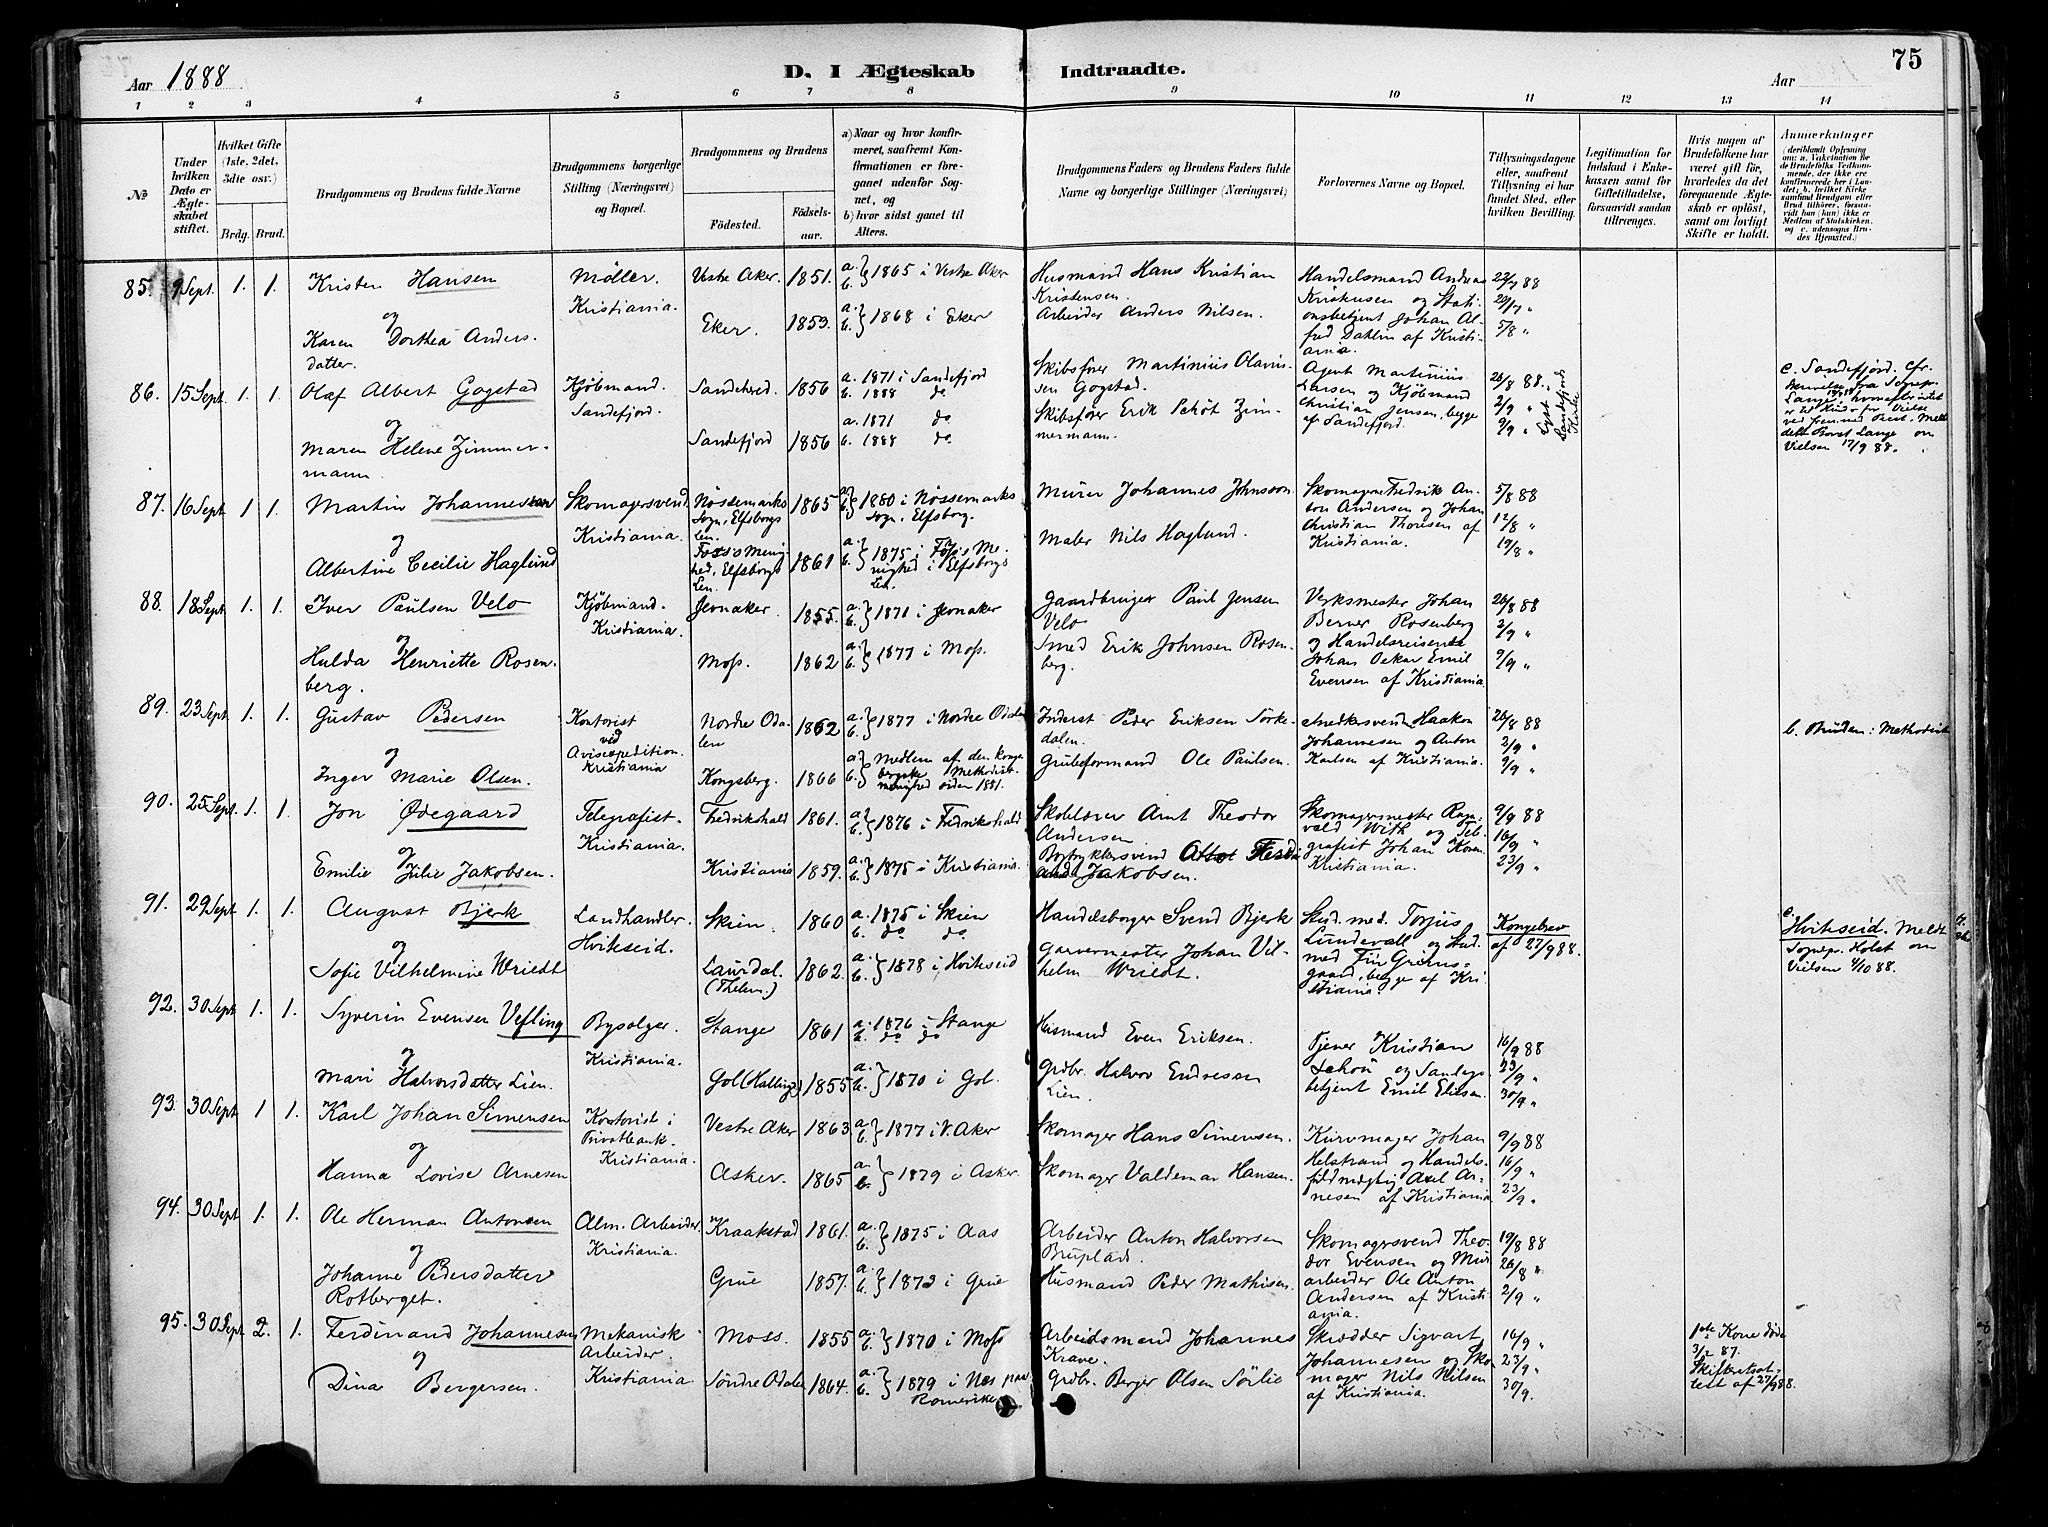 75
Aar 1888.
D. I Ægteskab Indtraadte.
Aar
1 2 3 4 5 6 7 8 9 10 11 12 13 14
No
Under hvilken Dato er Ægteskabet stiftet.
Hvilket Gifte (1ste, 2det, 3die osv.)
Brdg. Brud.
Brudgommens og Brudens fulde Navne
Brudgommens borgerlige Stilling (Næringsvei) og Bopæl.
Brudgommens og Brudens
Födested. Födselsaar.
a) Naar og hvor konfirmeret, saafremt Konfirmationen er foregaaet udenfor Sognet, og
b) hvor sidst gaaet til Alters.
Brudgommens Faders og Brudens Faders fulde Navne og borgerlige Stillinger (Næringsvei)
Forlovernes Navne og Bopæl.
Tillysningsdagene eller, saafremt Tillysning ei har fundet Sted, efter hvilken Bevilling.
Legitimation for Indskud i Enkekassen samt for Giftetilladelse, forsaavidt saadan tiltrænges.
Hvis nogen af Brudefolkene har været gift før, hvorledes da det foregaaende Ægteskab er oplöst, samt om lovligt Skifte er holdt.
Anmærkninger (deriblandt Oplysning om: a. Vakcination for de Brudefolks Vedkommende, der ikke ere konfirmerede her i Landet; b. hvilket Kirkesamfund Brudgom eller Brud tilhörer, forsaavidt han (hun) ikke er Medlem af Statskirken, og c. udensogns Brudes Hjemsted.)
85. 9 Sept. 1. 1.
Kristen Hansen
og
Karen Dorthea Andersdatter.
Møller. Kristiania.
Vestre Aker. 1851. a. b. } 1865 i Vestre Aker
Eker. 1853. a. b. } 1868 i Eker
Husmand Hans Kristian Kristensen.
Arbeider Anders Nilsen.
Handelsmand Andreas Kristensen og Stationsbetjent Johan Alfred Dahlin af Kristiania.
22/7 88
29/7 "
5/8 "
86. 15 Sept. 1. 1.
Olaf Albert Gogstad
og
Maren Helene Zimmermann.
Kjøbmand. Sandefjord.
Sandeherred. 1856 a. 1871 i Sandefjord b. 1888 do
Sandefjord 1856 a. 1871 do b. 1888 do.
Skibsfører Martinius Olaussen Gogstad.
Skibsfører Erik Schøt Zimmermann.
Agent Martinius Larsen og Kjøbmand Christian Jensen, begge af Sandefjord.
26/8 88.
2/9 "
9/9 "
Lyst i Sandefjords Kirke
c. Sandefjord. Cfr.
Vielsen 17/9 88.
87. 16 Sept. 1 1.
Martin Johannessen
og
Albertine Cecilie Haglund
Skomagersvend Kristiania.
Nössemarks Sogn, Elfsborgs Len. 1865 a. b. } 1880 i Nössemarks Sogn, Elfsborg.
Menighed, Elfsborgs Len. 1861 a. b. } 1875 i Menighed i Elfsborgs Len.
Murer Johannes Johnsson.
Maler Nils Haglund.
Skomagerne Fredrik Anton Andersen og Johan Christian Thoresen af Kristiania.
5/8 88
12/8 "
19/8 "
88. 18 Sept. 1. 1.
Iver Paulsen Velo
og
Hulda Henriette Rosenberg.
Kjøbmand. Kristiania.
Jevnaker. 1855. a. b. } 1871 i Jevnaker
Moss. 1862 a. b. } 1877 i Moss.
Gaardbruger Paul Jensen Velo
Smed Erik Johnsen Rosenberg.
Verksmester Johan Berner Rosenberg og Handelsreisende Johan Oskar Emil Evensen af Kristiania.
26/8 88
2/9 "
9/9 "
89. 23 Sept. 1. 1.
Gustav Pedersen
og
Inger Marie Olsen.
Kontorist ved Avisexpedition. Kristiania
Nordre Odalen 1852 a. b. } 1877 i Nordre Odalen
Kongsberg. 1866 a. b. } Medlem af den kongsbergske Methodistmenighed siden 1881.
Inderst Peder Eriksen Sørkedalen.
Grubeformand Ole Paulsen.
Snedkersvend Haakon Johannesen og Anton Karlsen af Kristiania.
26/8 88
2/9 "
9/9 "
b. Bruden: Methodist
90. 25 Sept. 1. 1.
Jon Ødegaard
og
Emilie Julie Jakobsen.
Telegrafist. Kristiania.
Fredrikshald 1861. a. b. } 1876 i Fredrikshald
Kristiania 1859. a. b. } 1875 i Kristiania.
Skolelærer Arnt Theodor Andersen
Bogtrykkersvend Jakobsen.
Skomagermester Ragnvald With og Telegrafist Johan Koren Kristiania.
9/9 88
16/9 "
23/9 "
91. 29 Sept. 1. 1.
August Bjerk
og
Sofie Vilhelmine Wriedt
Landhandler. Hviteseid.
Skien. 1860 a. 1875 i Skien b. do do
Laurdal. (Thelem.) 1862. a. b. } 1878 i Hviteseid
Handelsborger Svend Bjerk
Garvermester Johan Vilhelm Wriedt.
Stud. med. Torjus Lundevall og Stud. med. begge af Kristiania.
Kongebrev af 27/9 88.
c. Hviteseid. Meldt Sognep. Holst om Vielsen 4/10 88.
92. 30 Sept. 1. 1.
Syverin Evensen Vefling
og
Mari Halvorsdatter Lien.
Bysælger. Kristiania.
Stange 1861 a. 1876 i Stange b. do do
Gol (Hallingd.) 1855 a. b. } 1870 i Gol.
Husmand Even Eriksen.
Grdbr. Halvor Endresen Lien.
Tjener Kristian Schou og betjent Emil Ellsen.
16/9 88
23/9 "
30/9 "
93. 30 Sept. 1 1.
Karl Johan Simensen
og
Hanna Lovise Arnesen
Kontorist i Privatbank. Kristiania.
Vestre Aker 1863 a. b. } 1877 i V. Aker
Asker. 1865 a. b. } 1879 i Asker.
Skomager Hans Simensen.
Skomager Valdemar Hansen.
Kurvmager Johan Helstrand og Handelsfuldmægtig Axel Arnesen af Kristiania
9/9 88
16/9 "
23/9 "
94. 30 Sept. 1. 1.
Ole Herman Antonsen
og
Johanne Pedersdatter Rotberget.
Alm. Arbeider. Kristiania.
Kraakstad 1861. a. b. } 1875 i Aas
Grue 1857. a. b. } 1873 i Grue
Arbeider Anton Halvorsen Bruplads.
Husmand Peder Mathisen.
Skomagersvend Theodor Evensen og Murarbeider Ole Anton Andersen af Kristiania.
19/8 88
26/8 "
2/9 "
95. 30 Sept. 2. 1.
Ferdinand Johannesen
og
Dina Bergersen.
Mekanisk Arbeider. Kristiania.
Moss. 1855 a. b. } 1870 i Moss
Søndre Odalen 1864. a. b. } 1879 i Nes paa Romerike
Arbeidsmand Johannes Krave.
Grdbr. Berger Olsen Sörlie
Skrædder Sigvart Johannesen og Skomager Nils Nilsen af Kristiania.
16/9 "
23/9 "
30/9.
1ste Kone døde 3/2 87. Skifteretsattest af 27/9 88.